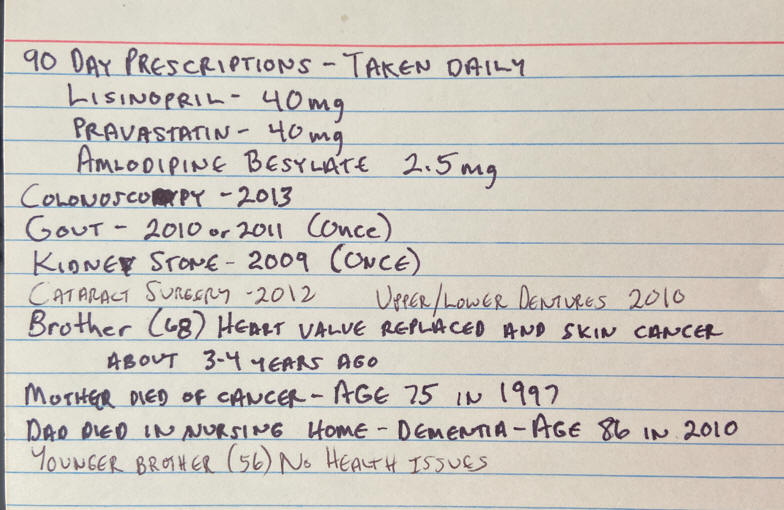 90 DAY PRESCRIPTIONS - TAKEN DAILY
LISINOPRIL - 40 mg
PRAVASTATIN - 40 mg
AMLODIPINE BESYLATE 2.5 mg
COLONOSCOPY - 2013
GOUT - 2010 or 2011 (ONCE)
KIDNEY STONE - 2009 (ONCE)
CATARACT SURGERY - 2012 UPPER/LOWER DENTURES 2010
Brother (68) HEART VALUE REPLACED AND SKIN CANCER
ABOUT 3-4 YEARS AGO
MOTHER DIED OF CANCER - AGE 75 IN 1997
DAD DIED IN NURSING HOME - DEMENTIA - AGE 86 IN 2010
YOUNGER BROTHER (56) NO HEALTH ISSUES